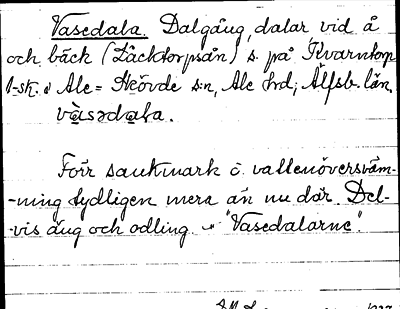 Vasedala. Dalgång, dalar vid å
och bäck (Läcktorpsån) s. på Kvarntorp
1-sk. i Ale-Skövde sn, Ale hd, Älfsb. län.
vàsədala.
Förr sankmark o. vattenöversväm-
-ning tydligen mera än nu där. Del-
-vis äng och odling. "Vasedalarne".